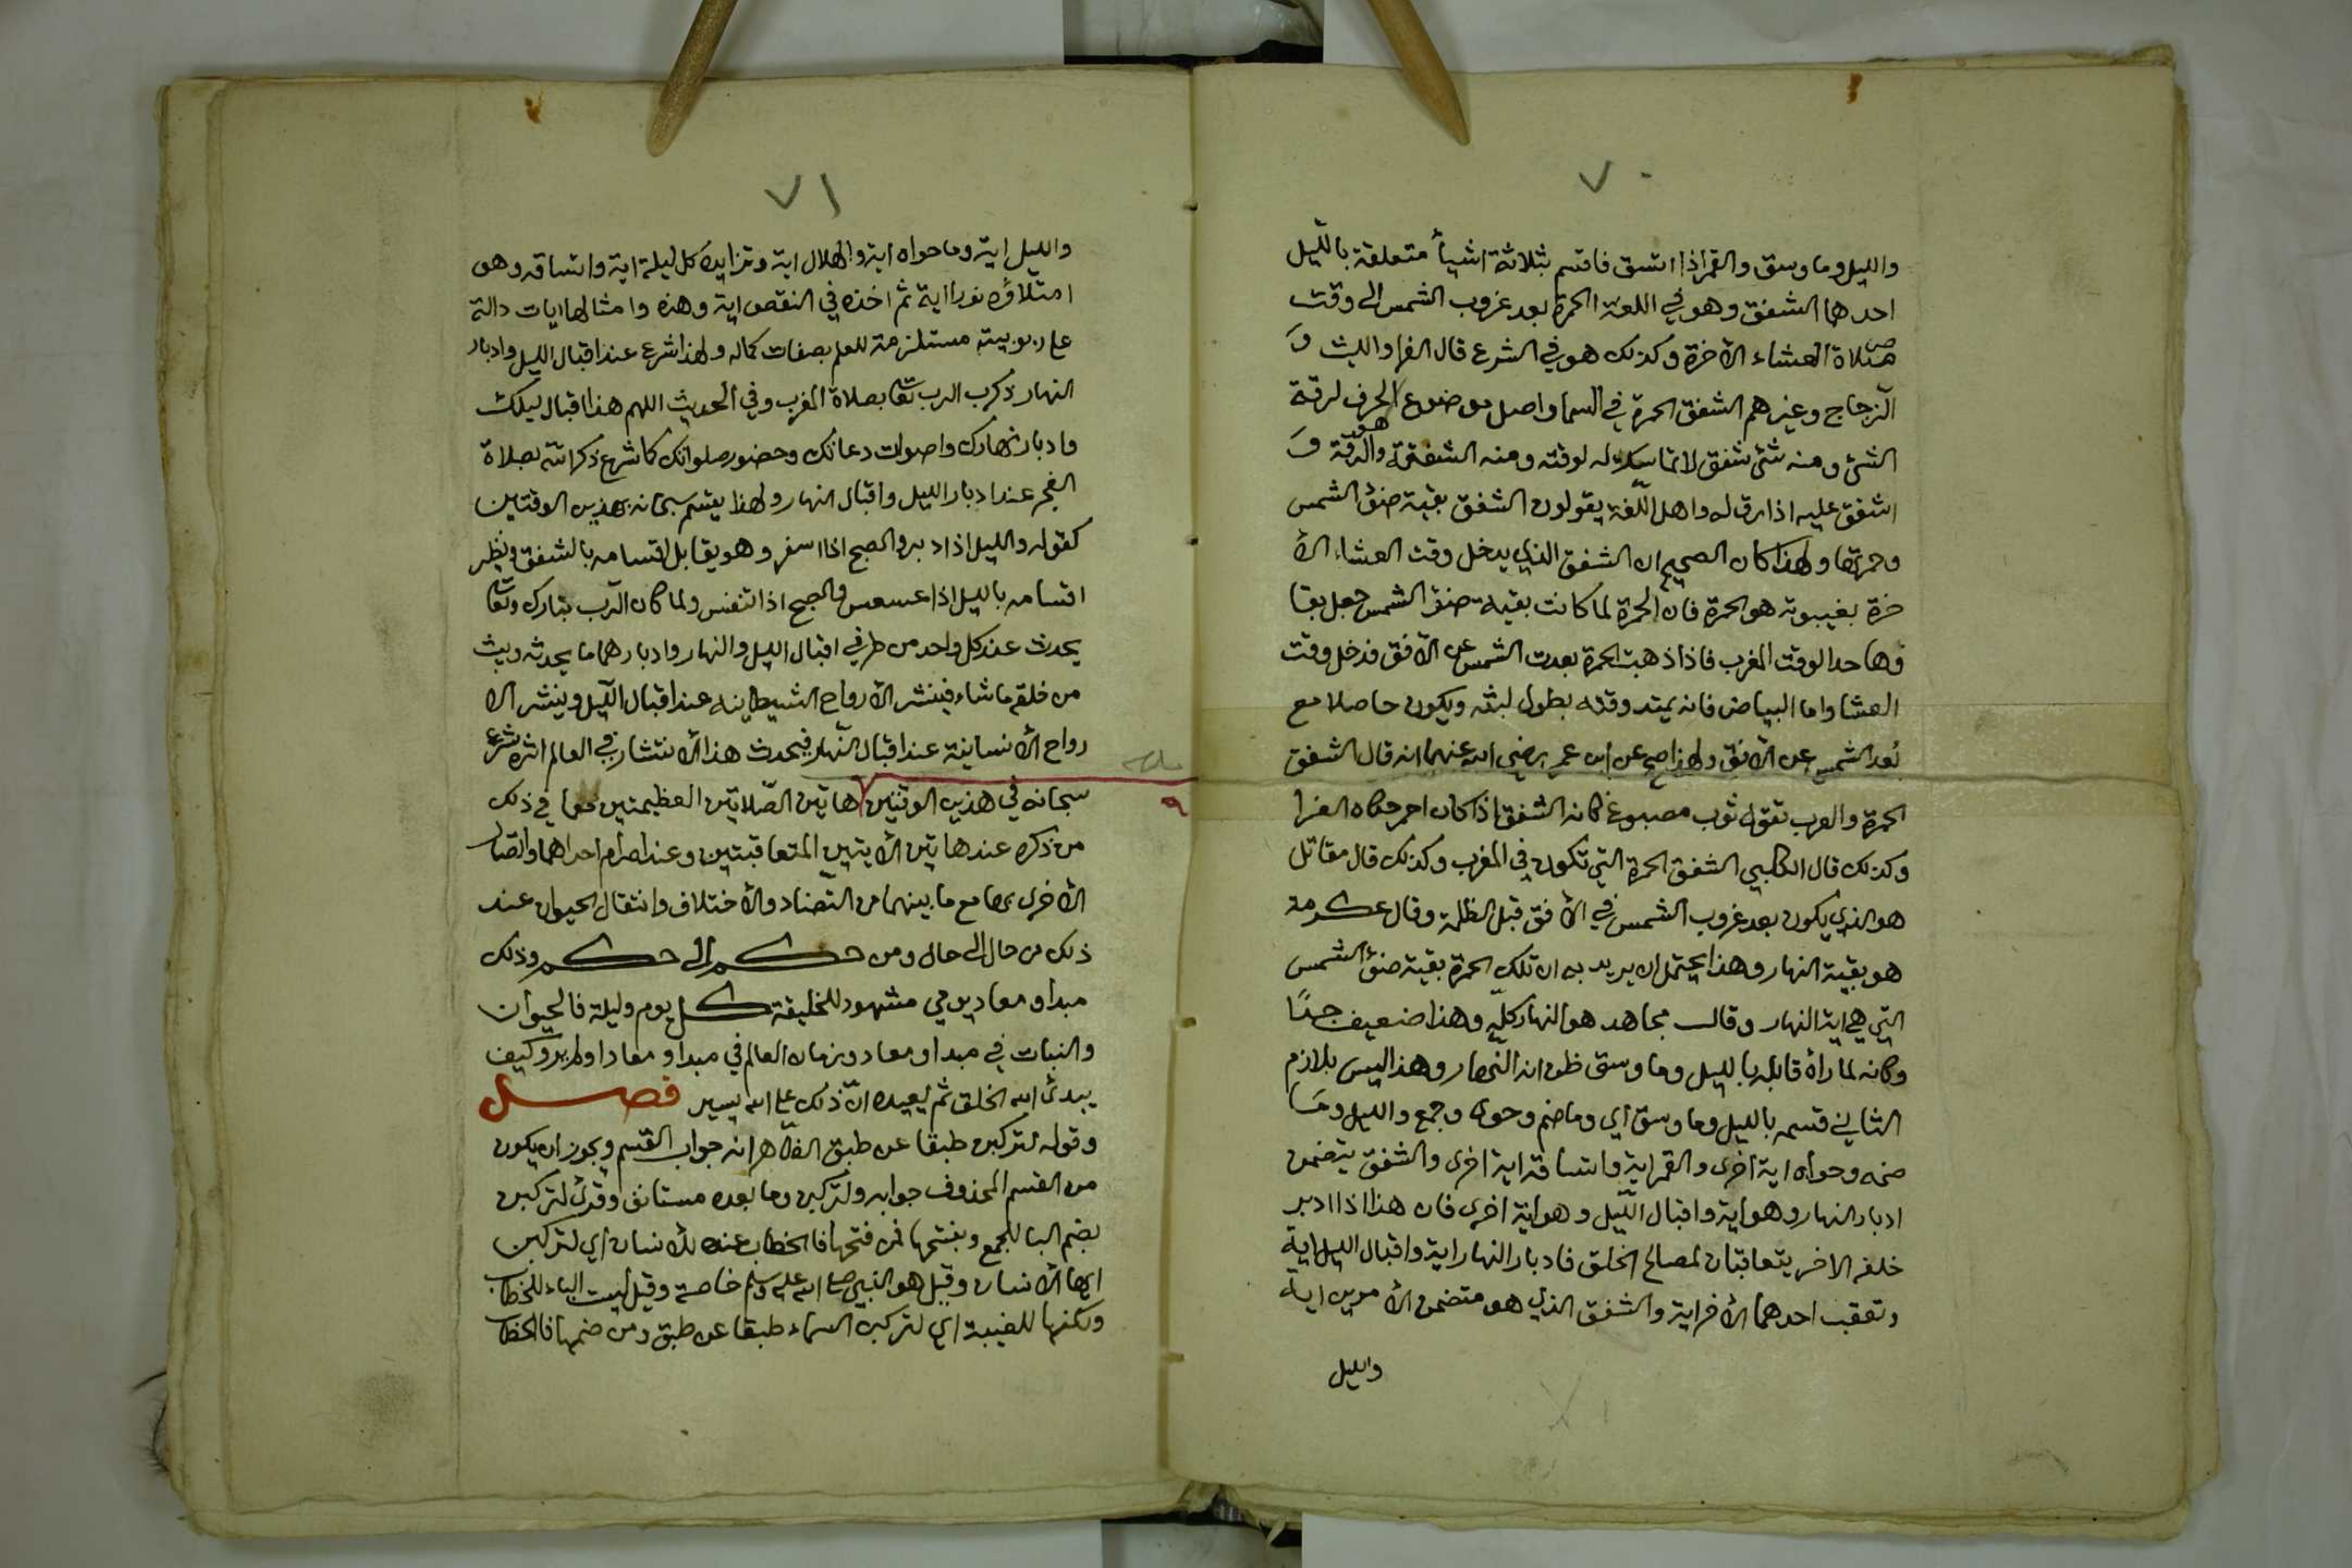 ٧٠
والليل وما وسق والقمر اذا اتسق فاقسم بثلاثة اشياء متعلقة بالليل
احدها الشفق وهو في اللغة الحمرة بعد غروب الشمس الى وقت
صلاة العشاء الآخرة وكذلك هو في الشرع قال الفرا والليث و
الزجاج وغيرهم الشفق الحمرة في السما واصل موضوع الحرف لرقة
الشئ ومنه شئ شفق لا تماسك له لرقته ومنه الشفقة وهو الرقة و
اشفق عليه اذا رق له واهل اللغة يقولون الشفق بقية ضوٴ الشمس
وحمرتها ولهذا كان الصحيح ان الشفق الذي يدخل وقت العشاء الآ
خرة بغيبوبته هو الحمرة فان الحمرة لما كانت بقية ضوٴ الشمس جعل بقا
وها حدا لوقت المغرب فاذا ذهبت الحمرة بعدت الشمس عن الافق فدخل وقت
العشا واما البياض فانه يمتد وقته بطول لبثه ويكون حاصلا مع
بُعد الشمس عن الافق ولهذا صح عن ابن عمر رضي الله عنهما انه قال الشفق
الحمرة والعرب تقول ثوب مصبوغ كانه الشفق اذا كان احمر حكاه الفرا
وكذلك قال الكلبي الشفق الحمرة التي تكون في المغرب وكذلك قال مقاتل
هو الذي يكون بعد غروب الشمس في الافق قبل الظلمة وقال عكرمة
هو بقية النهار وهذا يحتمل ان يريد به ان تلك الحمرة بقية ضوٴ الشمس
التي هي اية النهار وقال مجاهد هو النهار كلّه وهذا ضعيف جدًا
وكانه لما راٰه قابله بالليل وما وسق ظن انه النهار وهذا ليس بلازم
الثاني قسمه بالليل وما وسق اي وما ضم وحوى وجمع والليل وما
ضمه وحواه اية اخرى والقمر اية واتساقه اية اخرى والشفق يتضمن
ادبار النهار وهو اية واقبال الليل وهو اية اخرى فان هذا اذا ادبر
خلفه الاخر يتعاقبان لمصالح الخلق فادبار النهار اية واقبال الليل اية
وتعقب احدهما الآخر اية والشفق الذي هو متضمن الامرين اية
والليل
٧١
والليل اية وما حواه اية والهلال اية وتزايده كل ليلة اية واتساقه وهو
امتلاؤه نورا اية ثم اخذه في النقص اية وهذه وامثالها ايات دالة
على ربوبيته مستلزمة للعلم بصفات كماله ولهذا شرع عند اقبال الليل وادبار
النهار ذكر الرب تعا بصلاة المغرب وفي الحديث اللهم هذا اقبال ليلك
وادبار نهارك واصوات دعاتك وحضور صلواتك كما شرع ذكر الله بصلاة
الفجر عند ادبار الليل واقبال النهار ولهذا يقسم سبحانه بهذين الوقتين
كقوله والليل اذا دبر والصبح اذا اسفر وهو يقابل اقسامه بالشفق ونظير
اقسامه بالليل اذا عسعس والصبح اذا تنفس ولما كان الرب تبارك وتعا
يحدث عند كل واحد من طرفي اقبال الليل والنهار وادبارهما ما يحدثه ويبث
من خلقه ماشاء فينشر الارواح الشيطانيه عند اقبال الليل وينشر الا
رواح الانسانية عند اقبال النهار فيحدث هذا الانتشار في العالم اثره شرع
سبحانه في هذين الوقتين هاتين الصلاتين العظيمتين مع ما في ذلك
من ذكره عند هاتين الآيتين المتعاقبتين وعند انصرام احداهما واتصال
الاخرى بها مع ما بينهما من التضاد والاختلاف وانتقال الحيوان عند
ذلك من حال الى حال ومن حكم الى حكم وذلك
مبدا ومعاد يومي مشهود للخليقة كل يوم وليلة فالحيوان
والنبات في مبدا ومعاد وزمان العالم في مبدا ومعاد اولم يرو كيف
يبدئ الله الخلق ثم يعيده انّ ذلك على الله يسير فصل
وقوله لتركبن طبقا عن طبق الظاهر انه جواب القسم ويجوز ان يكون
من القسم المحذوف جوابه ولتركبن وما بعده مستانف وقرئ لتركبن
بضم البا للجمع وبفتحها فمن فتحها فالخطاب عنده للانسان اي لتركبن
ايها الانسان وقيل هو النبي صلى الله عليه وسلم خاصة وقيل ليست التاء للخطاب
ولكنها للغيبة اي لتركبن السماء طبقا عن طبق ومن ضمها فالخطاب